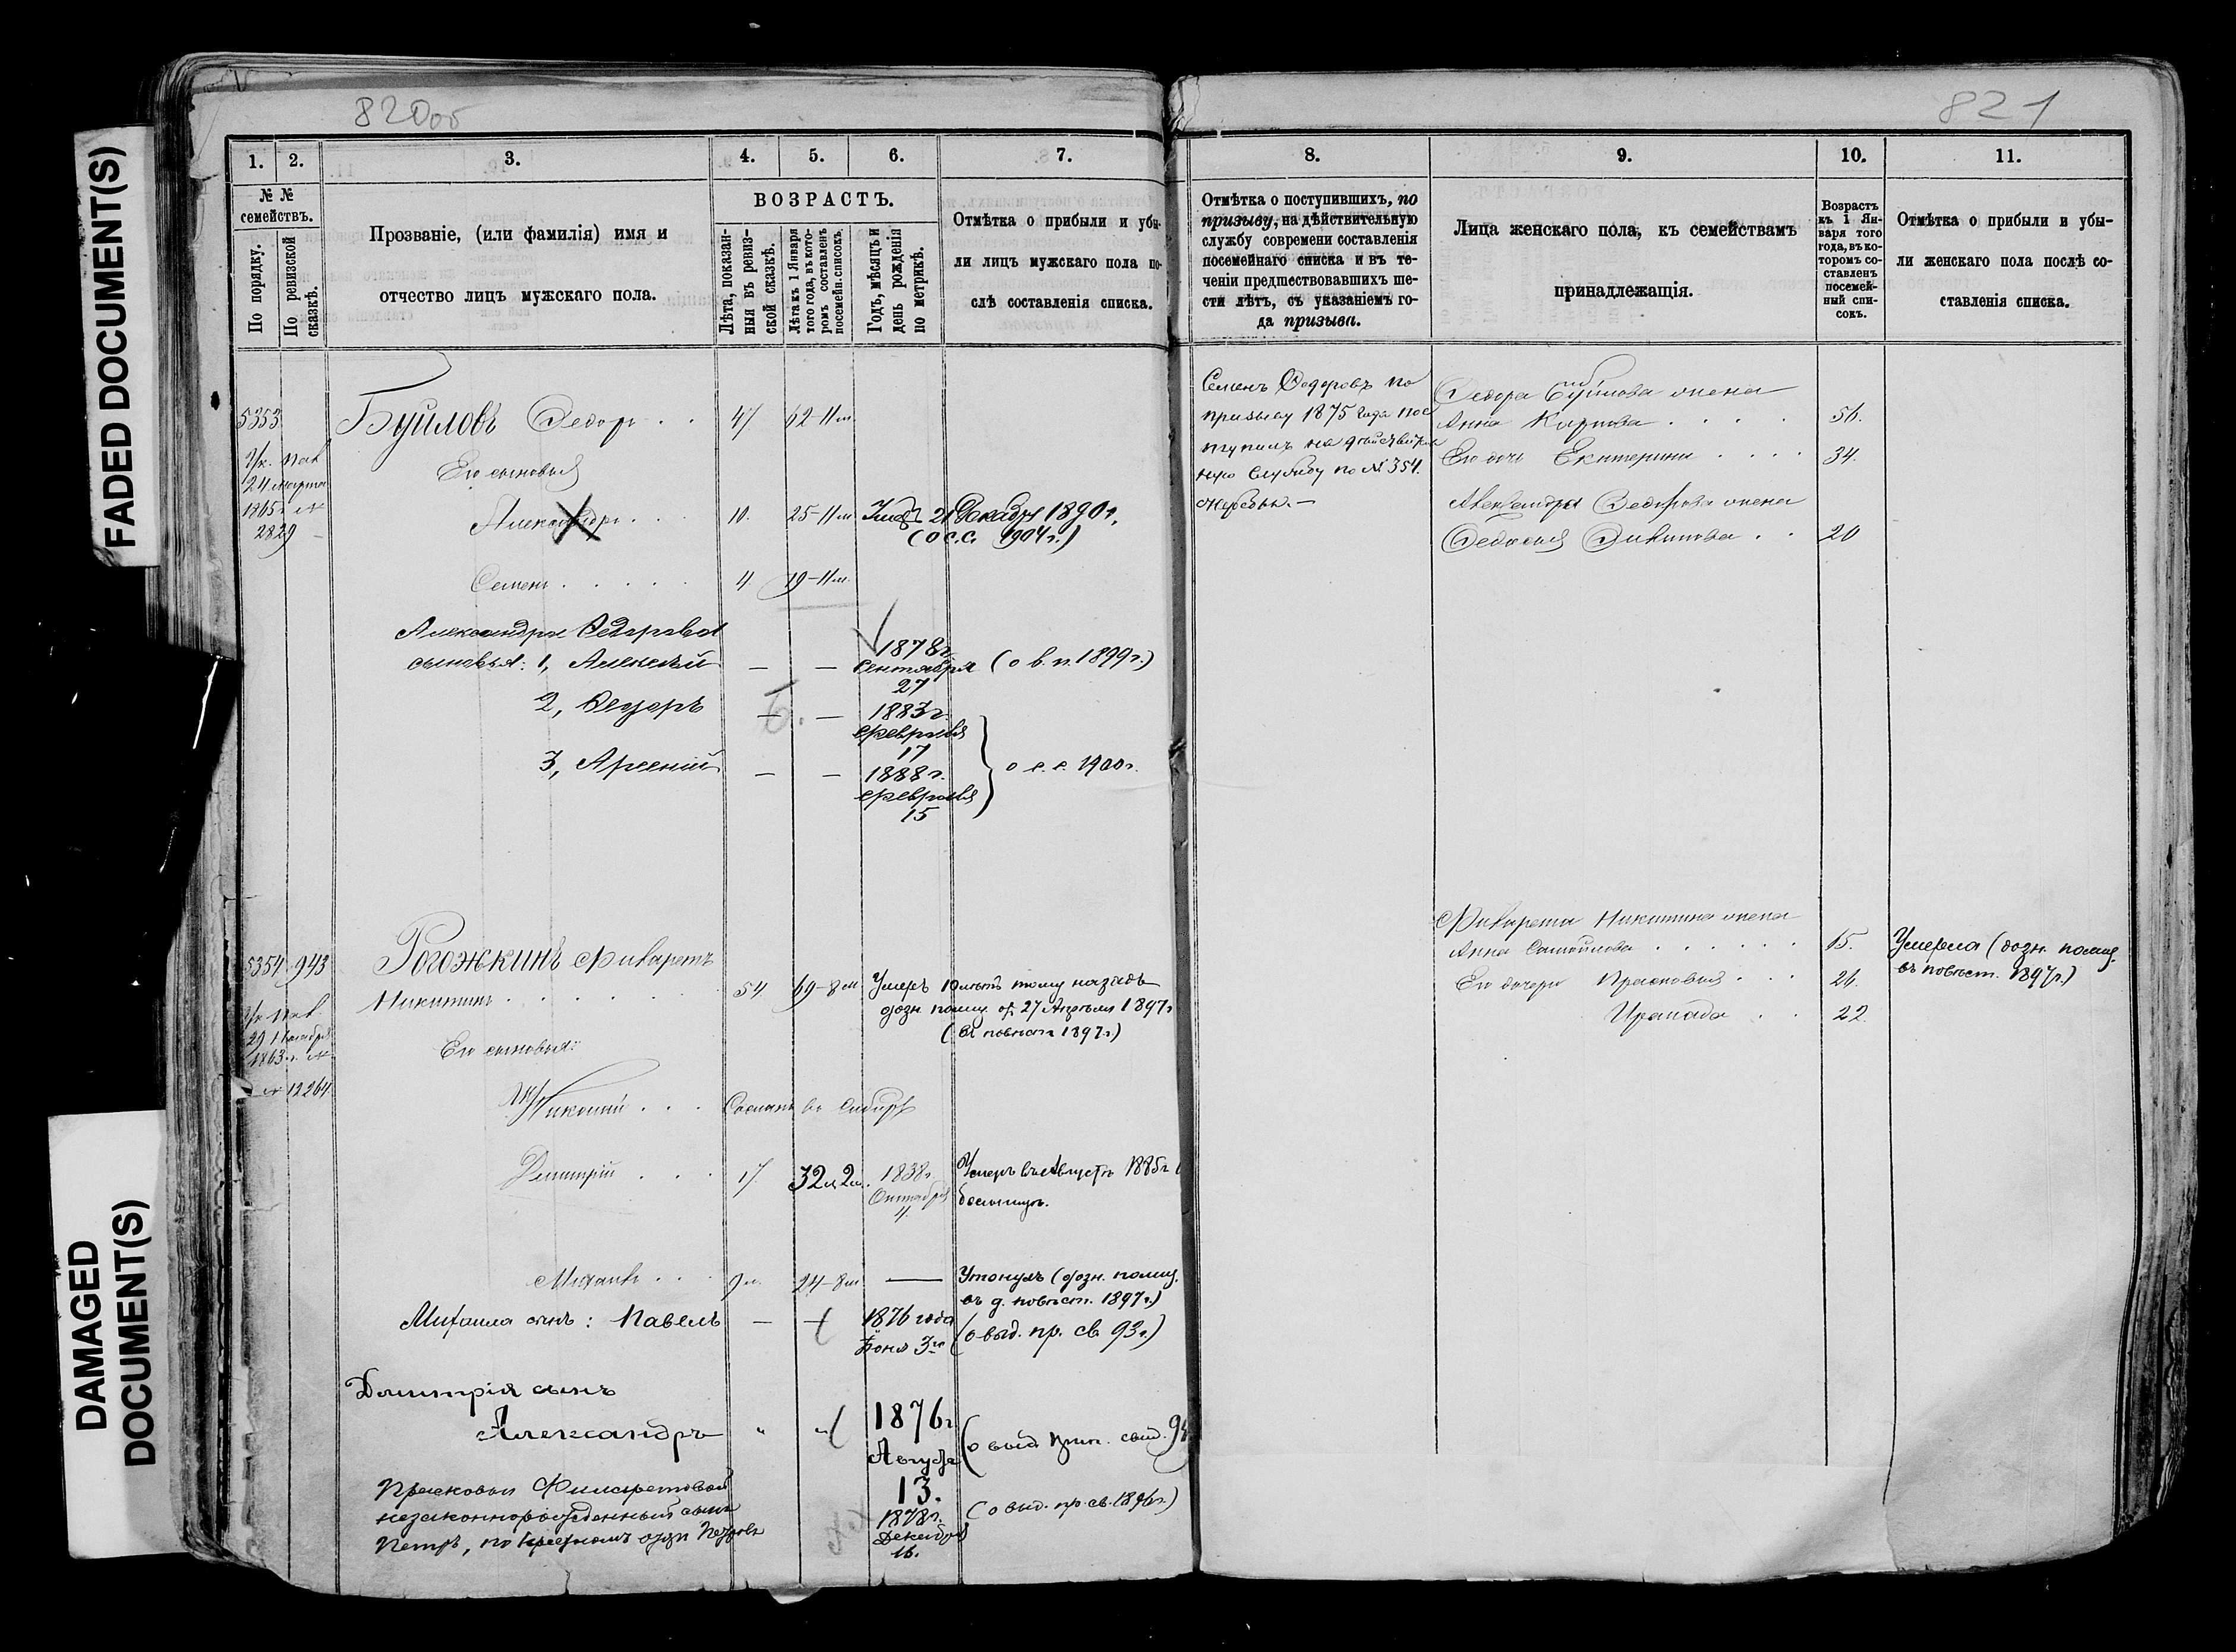 FADED DOCUMENT(S)
DAMAGED
DOCUMENT(S)
820об
1.
2.
3.
4.
5.
6.
7.
№ №
семействъ.
По порядку.
По ревизской
сказкѣ.
Прозваніе, (или фамилія) имя и
отчество лицъ мужскаго пола.
ВОЗРАСТЪ.
Лѣта, показан-
ныя въ ревиз-
ской сказкѣ.
Лѣта къ 1 Января
того года, въ кото-
ромъ составленъ
посемейн. списокъ.
Годъ, мѣсяцъ и
день рожденія
по метрикѣ.
Отмѣтка о прибыли и убы-
ли лицъ мужскаго пола по-
слѣ составленія списка.
5353
24 марта
1865 г №
2829
Буйловъ Ѳедоръ . . 47 62-11м
Его сыновья
Александръ . . . 10. 25-11м 21 Декабря 1890г.
(о с.с. 1904 г.)
Семенъ . . . . . 4 19-11м.
Александра Ѳедорова
сыновья: 1, Алексѣй — — 1878г. Сентября 27 (о в. п. 1899г.)
2, Ѳедоръ — — 1883г. Февраля 17
3, Арсеній — — 1888г. Февраля 15 о с. с. 1900г.
5354 943
29 Ноября
1863 г. №
12264
Рогожкинъ Филаретъ
Никитинъ . . . . . 54 69-8м Умеръ 10 лѣтъ тому назадъ
дозн. полиц. от 27 Апрѣля 1897г
(въ повѣст 1897г.)
Его сыновья:
Николай . . . Сосланъ въ Сибирь
Дмитрій . . . 17 32 и 2м. 1838г. Октября 4. Умеръ въ Августѣ 1885г
Михаилъ . . . 9м. 24-8м — Утонулъ (дозн. полиц.
въ д. повѣст. 1897г.)
Михаила сынъ: Павелъ — 1876 года Іюня 3го (о выд. пр. св. 93г.)
Дмитрія сынъ
Александръ " " 1876г Августа 13. (о выд. прип. свид. 94
Прасковьи Филаретовой
незаконнорожденный сынъ
Петръ, по крестномъ отцѣ Петровъ 1878г. Декабря 16. (о выд. пр. св. 1896г.)
821
8.
9.
10.
11.
Отмѣтка о поступившихъ, по
призыву, на дѣйствительную
службу современи составленія
посемейнаго списка и въ те-
ченіи предшествовавшихъ ше-
сти лѣтъ, съ указаніемъ го-
да призыва.
Лица женскаго пола, къ семействамъ
принадлежащія.
Возрастъ
къ 1 Ян-
варя того
года, въ ко-
торомъ со-
ставленъ
посемей-
ный спи-
сокъ.
Отмѣтка о прибыли и убы-
ли женскаго пола послѣ со-
ставленія списка.
Семенъ Ѳедоровъ по
призыву 1875 года пос
тупилъ на дѣйствитель
ную службу по № 354.
жеребью.—
Ѳедора Буйлова жена
Анна Карпова . . . . 56.
Его дочь Екатерина . . . . 34.
Александра Ѳедорова жена
Ѳедосья Филипова . . 20
Филарета Никитина жена
Анна Самойлова . . . . . . Умерла (дозн. полиц.
въ повѣст. 1897г.)
Его дочери Прасковья . . . 26.
Ираида . . 22.